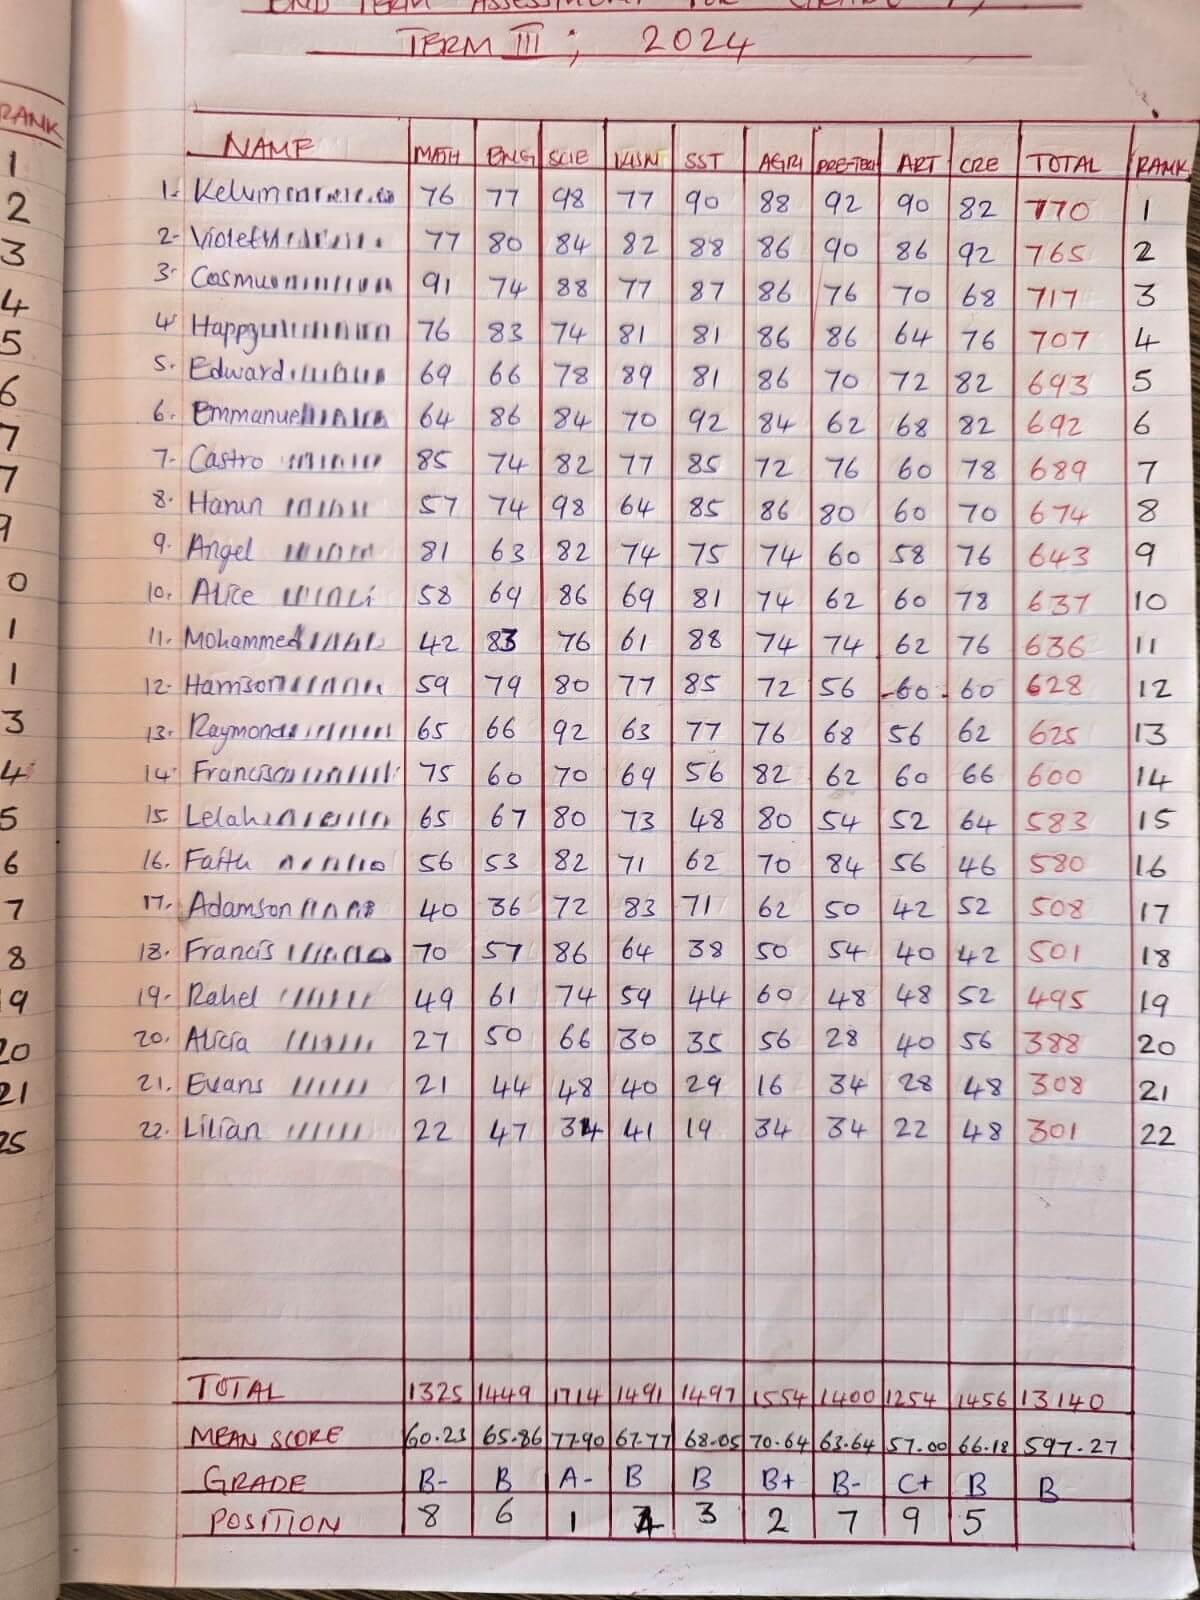 END TERM ASSESSMENT FOR GRADE 7,
TERM III ; 2024
RANK
1
2
3
4
5
6
7
7
9
0
1
1
3
4
5
6
7
8
19
20
21
25
NAME MATH ENG SCIE KISW SST AGRI PRE-TECH ART CRE TOTAL RANK
1. Kelvin 76 77 98 77 90 88 92 90 82 770 1
2- Violet 77 80 84 82 88 86 90 86 92 765 2
3. Cosmus 91 74 88 77 87 86 76 70 68 717 3
4. Happy 76 83 74 81 81 86 86 64 76 707 4
5. Edward 69 66 78 89 81 86 70 72 82 693 5
6. Emmanuel 64 86 84 70 92 84 62 68 82 692 6
7- Castro 85 74 82 77 85 72 76 60 78 689 7
8. Harun 57 74 98 64 85 86 80 60 70 674 8
9. Angel 81 63 82 74 75 74 60 58 76 643 9
10. Alice 58 69 86 69 81 74 62 60 78 637 10
11. Mohammed 42 83 76 61 88 74 74 62 76 636 11
12. Harrison 59 79 80 77 85 72 56 60 60 628 12
13. Raymond 65 66 92 63 77 76 68 56 62 625 13
14. Francisca 75 60 70 69 56 82 62 60 66 600 14
15. Lelah 65 67 80 73 48 80 54 52 64 583 15
16. Faith 56 53 82 71 62 70 84 56 46 580 16
17. Adamson 40 36 72 83 71 62 50 42 52 508 17
18. Francis 70 57 86 64 38 50 54 40 42 501 18
19- Rahel 49 61 74 59 44 60 48 48 52 495 19
20. Alicia 27 50 66 30 35 56 28 40 56 388 20
21. Evans 21 44 48 40 29 16 34 28 48 308 21
22. Lilian 22 47 34 41 19 34 34 22 48 301 22
TOTAL 1325 1449 1714 1491 1497 1554 1400 1254 1456 13140
MEAN SCORE 60.23 65.86 77.90 67.77 68.05 70.64 63.64 57.00 66.18 597.27
GRADE B- B A- B B B+ B- C+ B B
POSITION 8 6 1 4 3 2 7 9 5